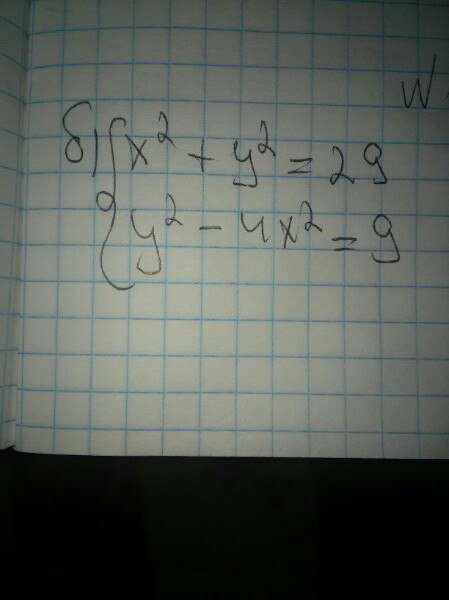 W.
б) { x² + y² = 29
y² - 4x² = 9